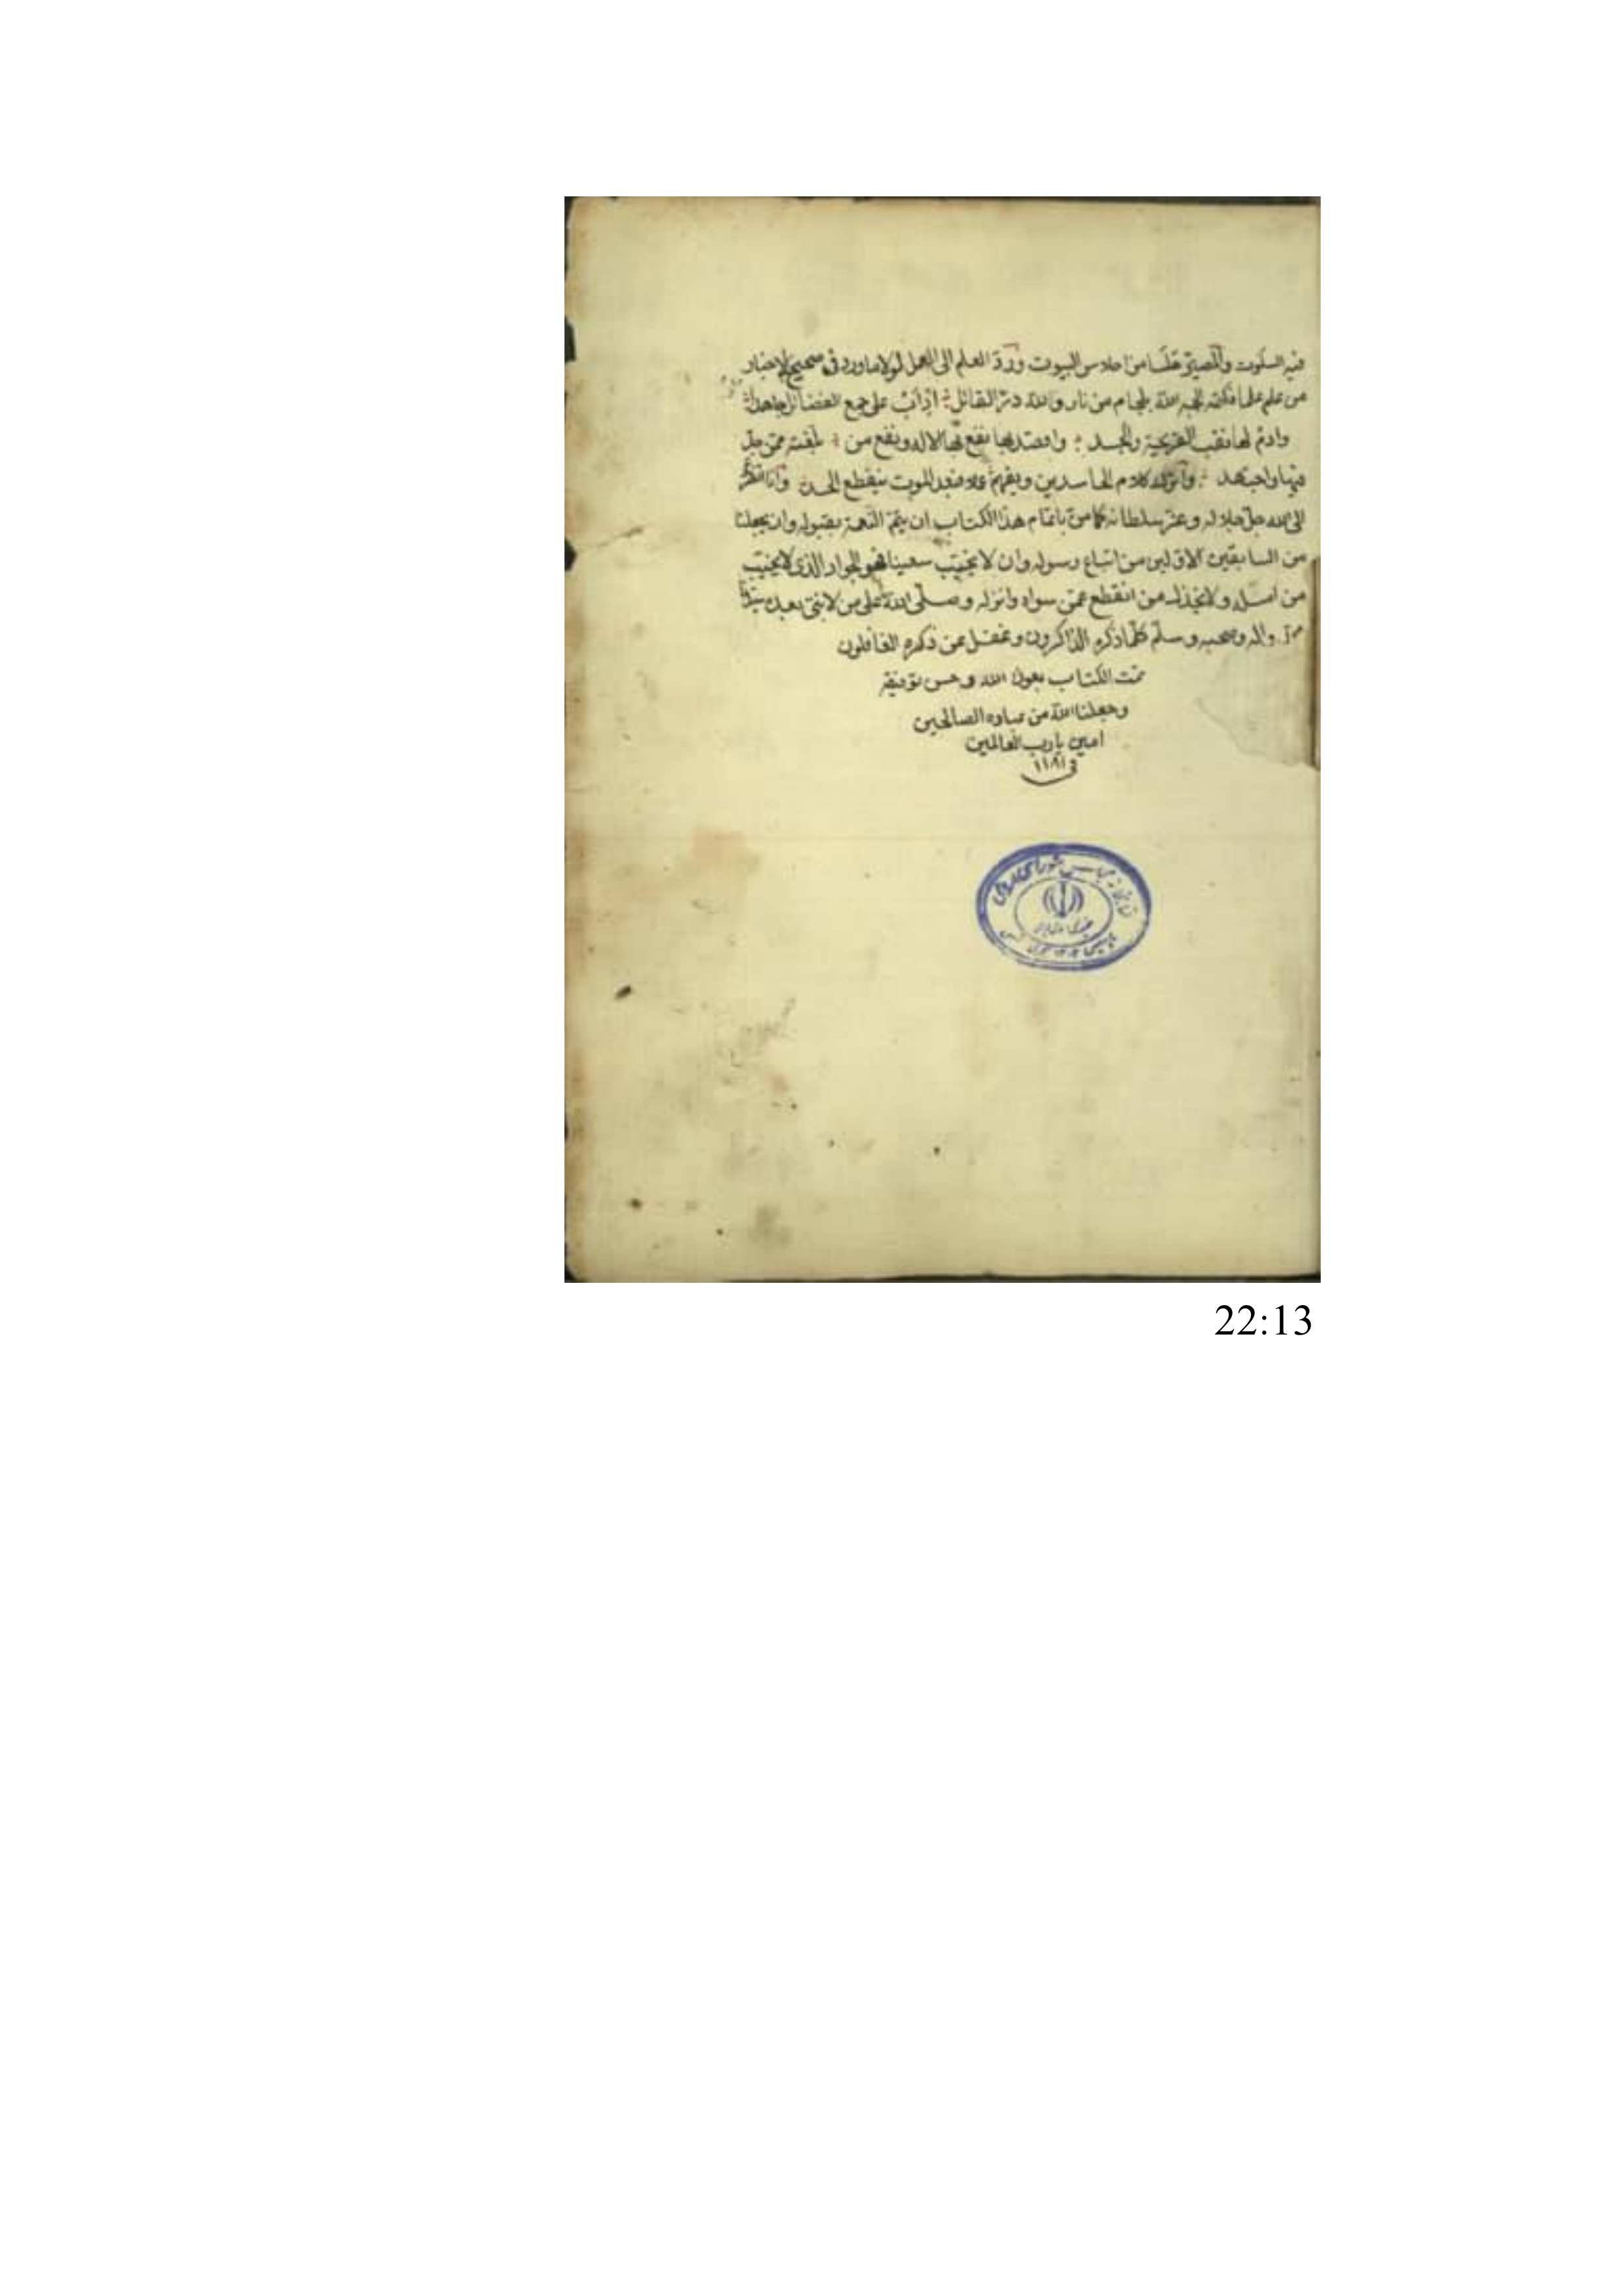 فيه السكوت والمصير حلسا من احلاس البيوت وردّ العلم الى العمل لولا ما ورد في صحيح الاخبار
من علم علما فكتمه الجمه الله بلجام من نار ولله درّ القائل ادأب على جمع الفضائل جاهدا
وادم لها تعب القريحة والجسد واقصد بها نفع بها الاله ونفع من بلغته ممن جدّ
فيها واجتهد واترك كلام الحاسدين وبغيهم فبعد الموت ينقطع الحسد وانا
الى الله جل جلاله وعز سلطانه كما منّ باتمام هذا الكتاب ان يتمّ النعمة بقبوله وان يجعلنا
من السابقين الاولين من اتباع رسوله وان لا يخيّب سعينا فهو الجواد الذي لا يخيب
من امله ولا يخذل من انقطع عمن سواه وصلى الله على من لا نبي بعده
واله وصحبه وسلم كلما ذكره الذاكرون وغفل عن ذكره الغافلون
تمت الكتاب بعون الله وحسن توفيقه
وجعلنا الله من عباده الصالحين
امين يا رب العالمين
في ١١٨١
كتابخانه مجلس شورای
22:13